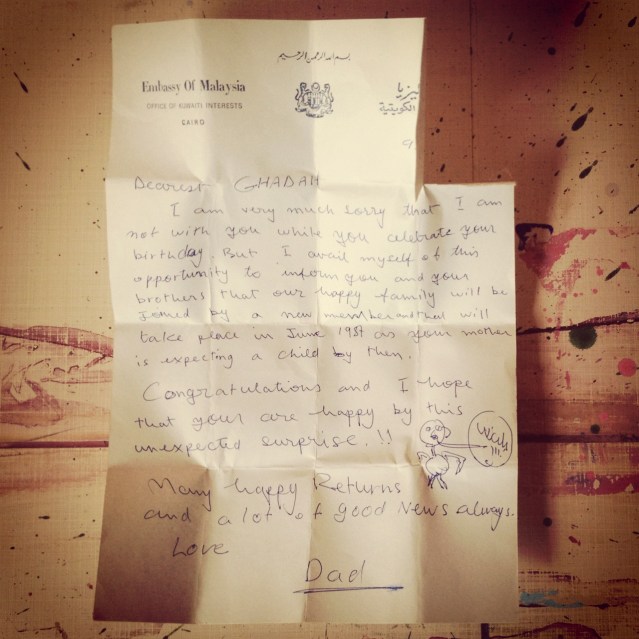 بسم الله الرحمن الرحيم
Embassy Of Malaysia
OFFICE OF KUWAITI INTERESTS
CAIRO
الكويتية
Dearest GHADAH
I am very much sorry that I am
not with you while you celebrate your
birthday. But I avail myself of this
opportunity to inform you and your
brothers that our happy family will be
joined by a new member and that will
take place in June 1987 as your mother
is expecting a child by then.
Congratulations and I hope
that your are happy by this
unexpected surprise.!!
Many happy Returns
and a lot of good News always.
Love
Dad